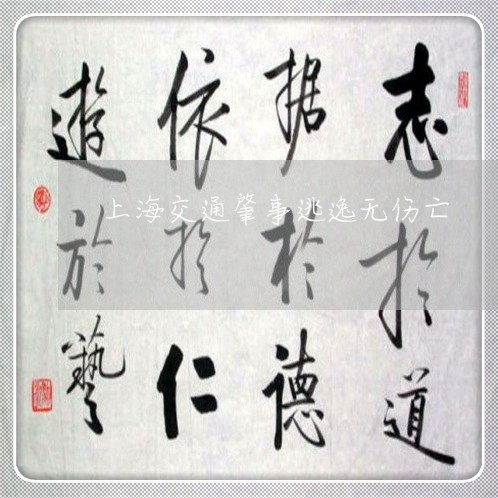 志於道
据於德
依於仁
遊於藝
上海交通肇事逃逸无伤亡